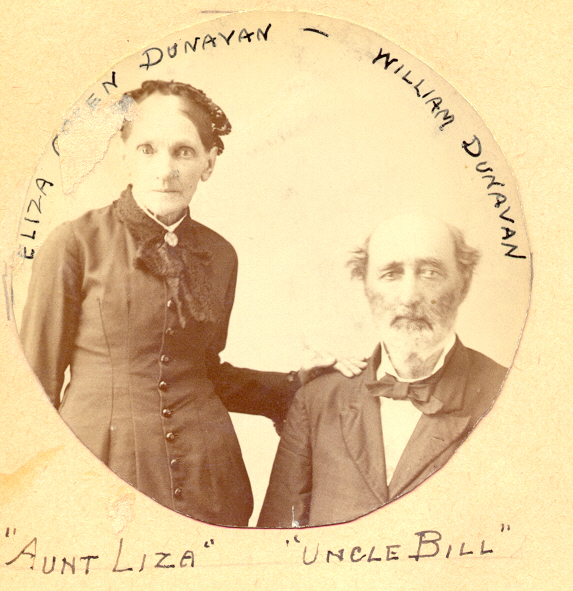 ELIZA DUNAVAN — WILLIAM DUNAVAN
"AUNT LIZA" "UNCLE BILL"